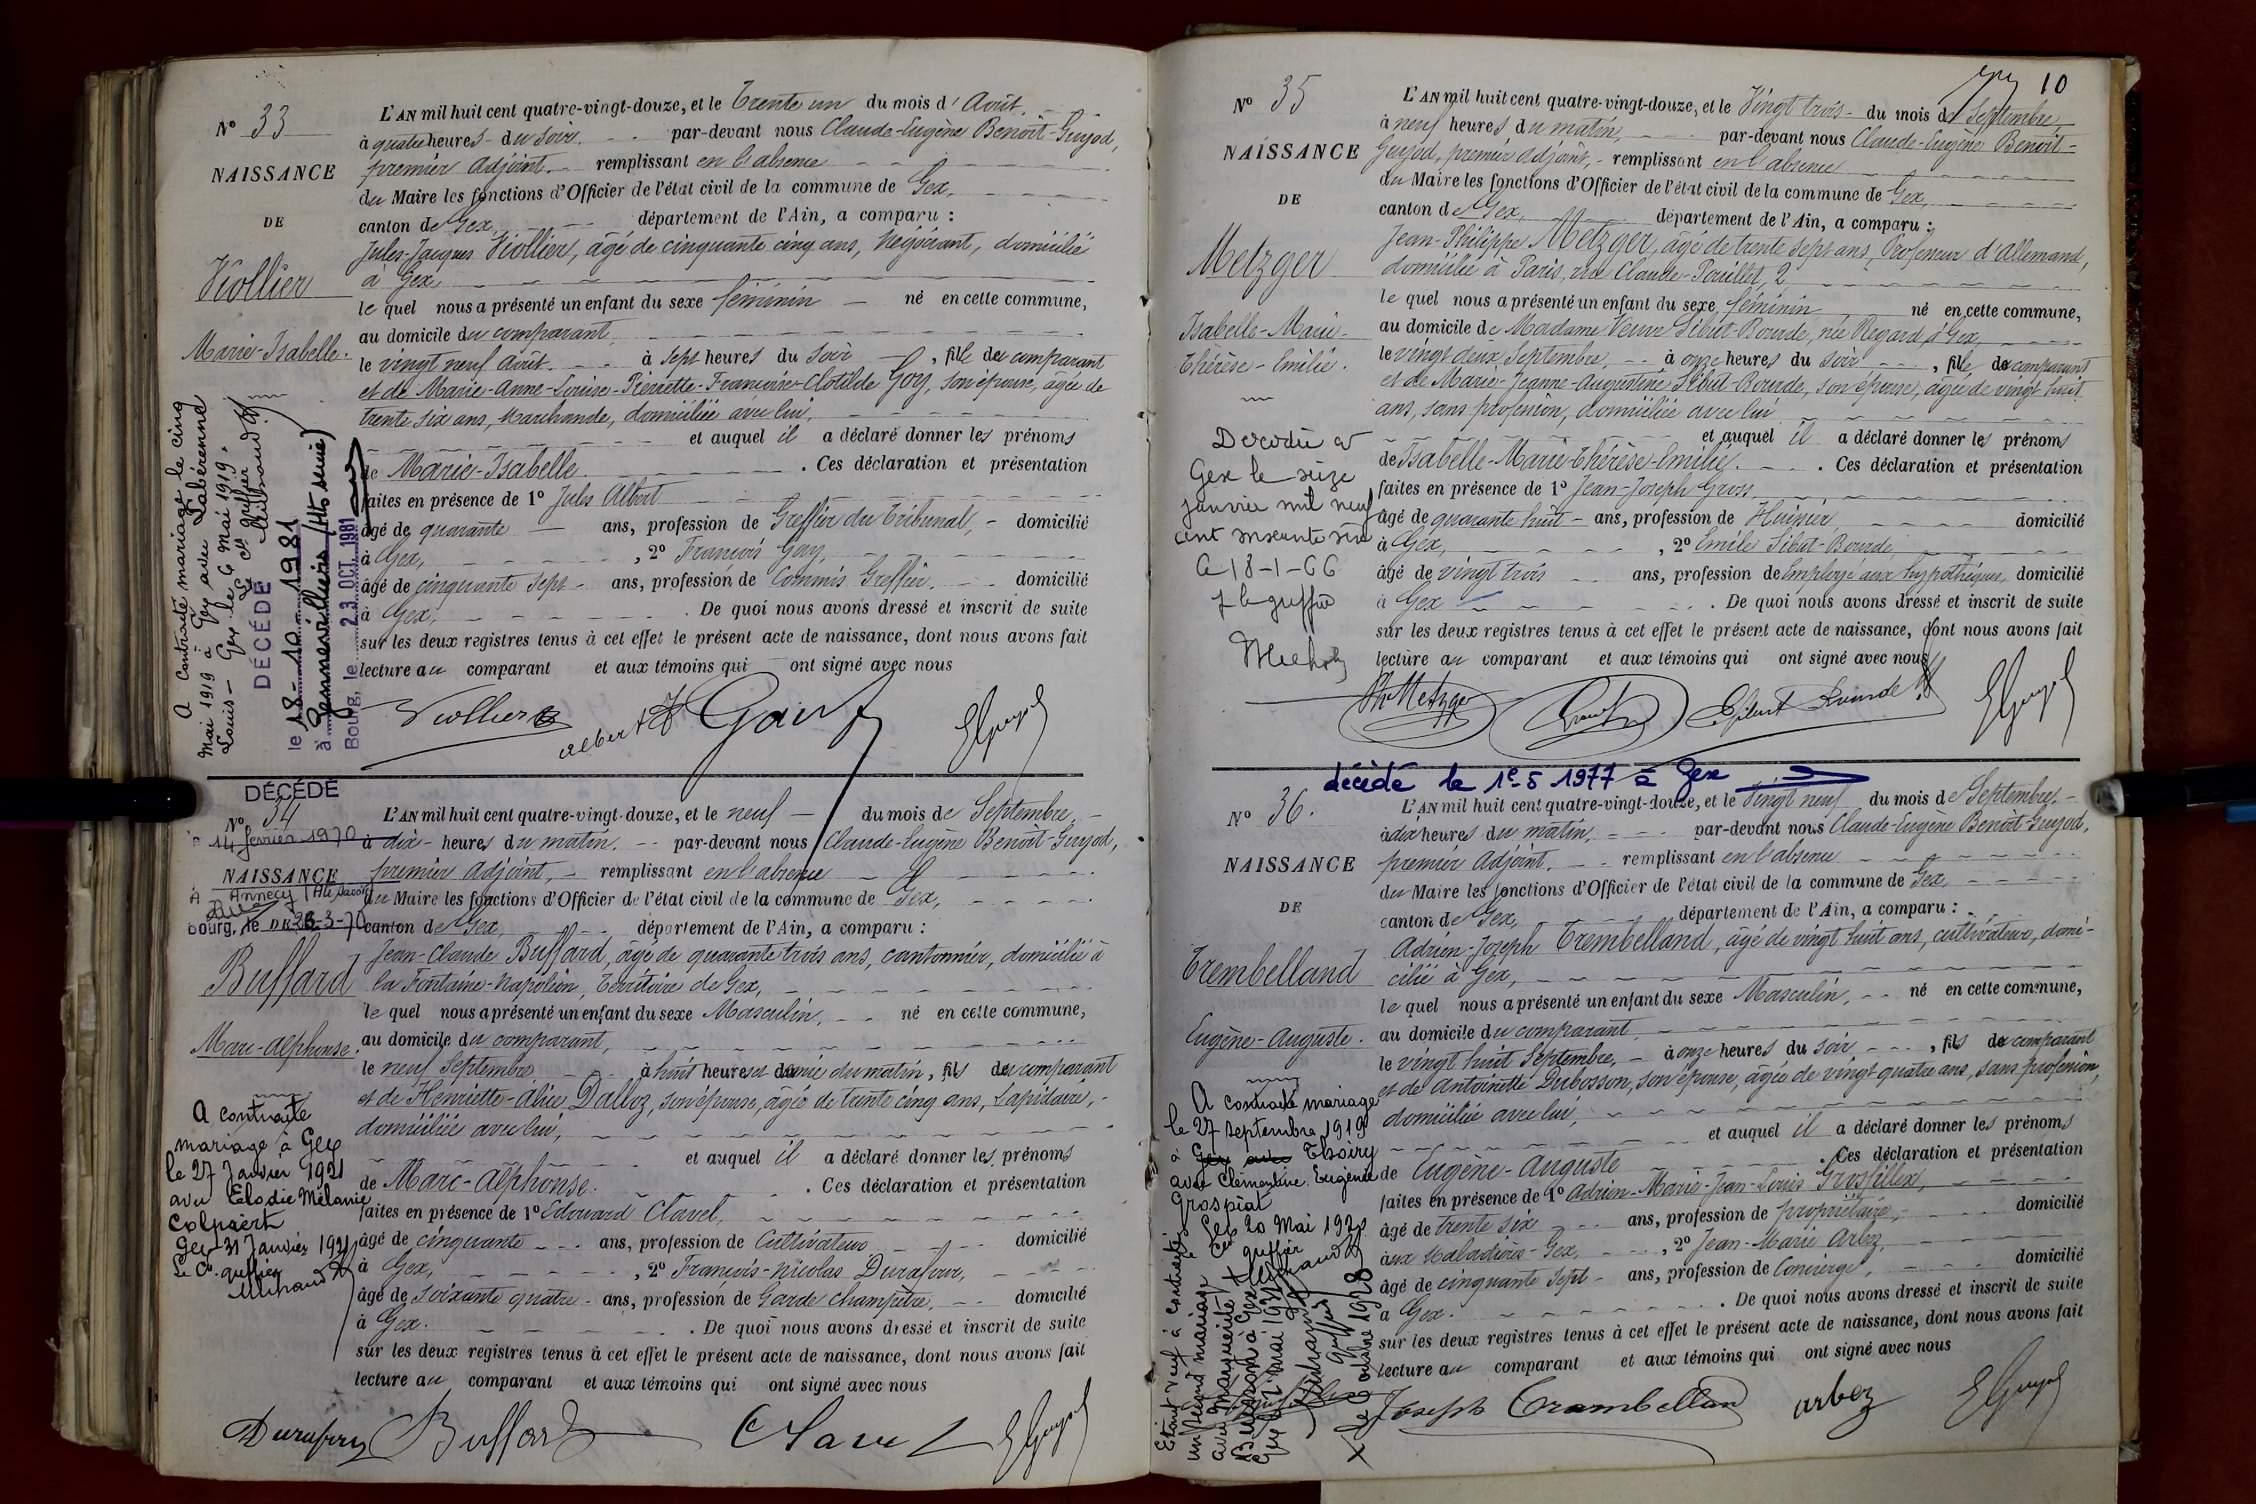 N° 33
NAISSANCE
DE
Viollier
Marie-Isabelle.
L'AN mil huit cent quatre-vingt-douze, et le Trente un du mois d'Août.
à quatre heures du soir. par-devant nous Claude-Eugène Benoit-Guyod,
premier adjoint, remplissant en l'absence
du Maire les fonctions d'Officier de l'état civil de la commune de Gex,
canton de Gex, département de l'Ain, a comparu :
Jules-Jacques Viollier, âgé de cinquante cinq ans, Négociant, domicilié
à Gex
le quel nous a présenté un enfant du sexe féminin né en cette commune,
au domicile du comparant,
le vingt neuf août. à sept heures du soir, fille du comparant
et de Marie-Anne-Louise-Pierrette-Françoise-Clotilde Goy, son épouse, âgée de
trente six ans, Marchande, domiciliée avec lui,
et auquel il a déclaré donner les prénoms
de Marie-Isabelle. Ces déclaration et présentation
faites en présence de 1° Jules Albert
âgé de quarante ans, profession de Greffier du Tribunal, domicilié
à Gex, , 2° François Gay,
âgé de cinquante sept ans, profession de Commis Greffier. domicilié
à Gex, . De quoi nous avons dressé et inscrit de suite
sur les deux registres tenus à cet effet le présent acte de naissance, dont nous avons fait
lecture au comparant et aux témoins qui ont signé avec nous
Viollier Albert Gay EGuyod
A contracté mariage le cinq
Mai 1919 à Gex avec
Louis — Gex le 4 Mai 1919.
Le Cis greffier
DÉCÉDÉ
le 18-10-1981
à Gennevilliers (Hts seine)
Bourg, le 23 OCT. 1981
DÉCÉDÉ
N° 34
14 février 1970
NAISSANCE
À Annecy (Hte Savoie)
bourg, le 26-3-70
DE
Buffard
Marc-Alphonse.
A contracté
mariage à Gex
le 27 Janvier 1921
avec Elodie Mélanie
Colpaert
Gex 31 Janvier 1921
Le Cis greffier
L'AN mil huit cent quatre-vingt-douze, et le neuf du mois de Septembre,
à dix heures du matin. par-devant nous Claude-Eugène Benoit-Guyod,
premier Adjoint, remplissant en l'absence
du Maire les fonctions d'Officier de l'état civil de la commune de Gex,
canton de Gex, département de l'Ain, a comparu :
Jean-Claude Buffard, âgé de quarante trois ans, cantonnier, domicilié à
la Fontaine-Napoléon, Territoire de Gex,
le quel nous a présenté un enfant du sexe Masculin, né en cette commune,
au domicile du comparant,
le neuf Septembre à huit heures et demie du matin, fils du comparant
et de Henriette-Alice Dalloz, son épouse, âgée de trente cinq ans, Lapidaire,
domiciliée avec lui,
et auquel il a déclaré donner les prénoms
de Marc-Alphonse. Ces déclaration et présentation
faites en présence de 1° Edouard Clavel,
âgé de cinquante ans, profession de Cultivateur domicilié
à Gex, , 2° François-Nicolas Durafour,
âgé de soixante quatre ans, profession de Garde champêtre, domicilié
à Gex. . De quoi nous avons dressé et inscrit de suite
sur les deux registres tenus à cet effet le présent acte de naissance, dont nous avons fait
lecture au comparant et aux témoins qui ont signé avec nous
Durafour Buffard Clavel EGuyod
10
N° 35
NAISSANCE
DE
Metzger
Isabelle-Marie-
Thérèse-Emilie.
Décédée à
Gex le seize
janvier mil neuf
cent soixante six
Le 18-1-66
le greffier
L'AN mil huit cent quatre-vingt-douze, et le Vingt trois du mois de Septembre,
à neuf heures du matin, par-devant nous Claude-Eugène Benoit-
Guyod, premier adjoint, remplissant en l'absence
du Maire les fonctions d'Officier de l'état civil de la commune de Gex,
canton de Gex, département de l'Ain, a comparu :
Jean-Philippe Metzger, âgé de trente sept ans, Professeur d'allemand,
domicilié à Paris, rue Claude-Pouillet, 2
le quel nous a présenté un enfant du sexe féminin né en cette commune,
au domicile de Madame Veuve Sibut-Bourde, née Regard à Gex,
le vingt deux Septembre, à onze heures du soir, fille du comparant
et de Marie-Jeanne-Augustine Sibut-Bourde, son épouse, âgée de vingt huit
ans, sans profession, domiciliée avec lui
et auquel il a déclaré donner les prénoms
de Isabelle-Marie-Thérèse-Emilie. Ces déclaration et présentation
faites en présence de 1° Jean-Joseph Gross,
âgé de quarante huit ans, profession de Huissier, domicilié
à Gex, , 2° Emile Sibut-Bourde,
âgé de vingt trois ans, profession de Employé aux hypothèques, domicilié
à Gex . De quoi nous avons dressé et inscrit de suite
sur les deux registres tenus à cet effet le présent acte de naissance, dont nous avons fait
lecture au comparant et aux témoins qui ont signé avec nous
Ph Metzger ESibut Bourde EGuyod
décédé le 1e-5 1977 à Gex
N° 36.
NAISSANCE
DE
Trembelland
Eugène-Auguste.
A contracté mariage
le 27 septembre 1919
à Thoiry
avec Clémentine Eugénie
Grospiat
Gex 20 Mai 1920
Cis greffier
Etant veuf a contracté
un second mariage
avec Marguerite
à Gex
L'AN mil huit cent quatre-vingt-douze, et le Vingt neuf du mois de Septembre,
à dix heures du matin, par-devant nous Claude-Eugène Benoit-Guyod,
premier Adjoint. remplissant en l'absence
du Maire les fonctions d'Officier de l'état civil de la commune de Gex,
canton de Gex, département de l'Ain, a comparu :
Adrien-Joseph Trembelland, âgé de vingt huit ans, cultivateur, domi-
cilié à Gex,
le quel nous a présenté un enfant du sexe Masculin, né en cette commune,
au domicile du comparant,
le vingt huit Septembre, à onze heures du soir, fils du comparant
et de Antoinette Dubosson, son épouse, âgée de vingt quatre ans, sans profession,
domiciliée avec lui,
et auquel il a déclaré donner les prénoms
de Eugène-Auguste . Ces déclaration et présentation
faites en présence de 1° Adrien-Marie-Jean-Louis Grosfillex,
âgé de trente six ans, profession de propriétaire, domicilié
aux Maladières-Gex, , 2° Jean-Marie Arbez,
âgé de cinquante sept ans, profession de Concierge, domicilié
à Gex. . De quoi nous avons dressé et inscrit de suite
sur les deux registres tenus à cet effet le présent acte de naissance, dont nous avons fait
lecture au comparant et aux témoins qui ont signé avec nous
Joseph Trambelland arbez EGuyod